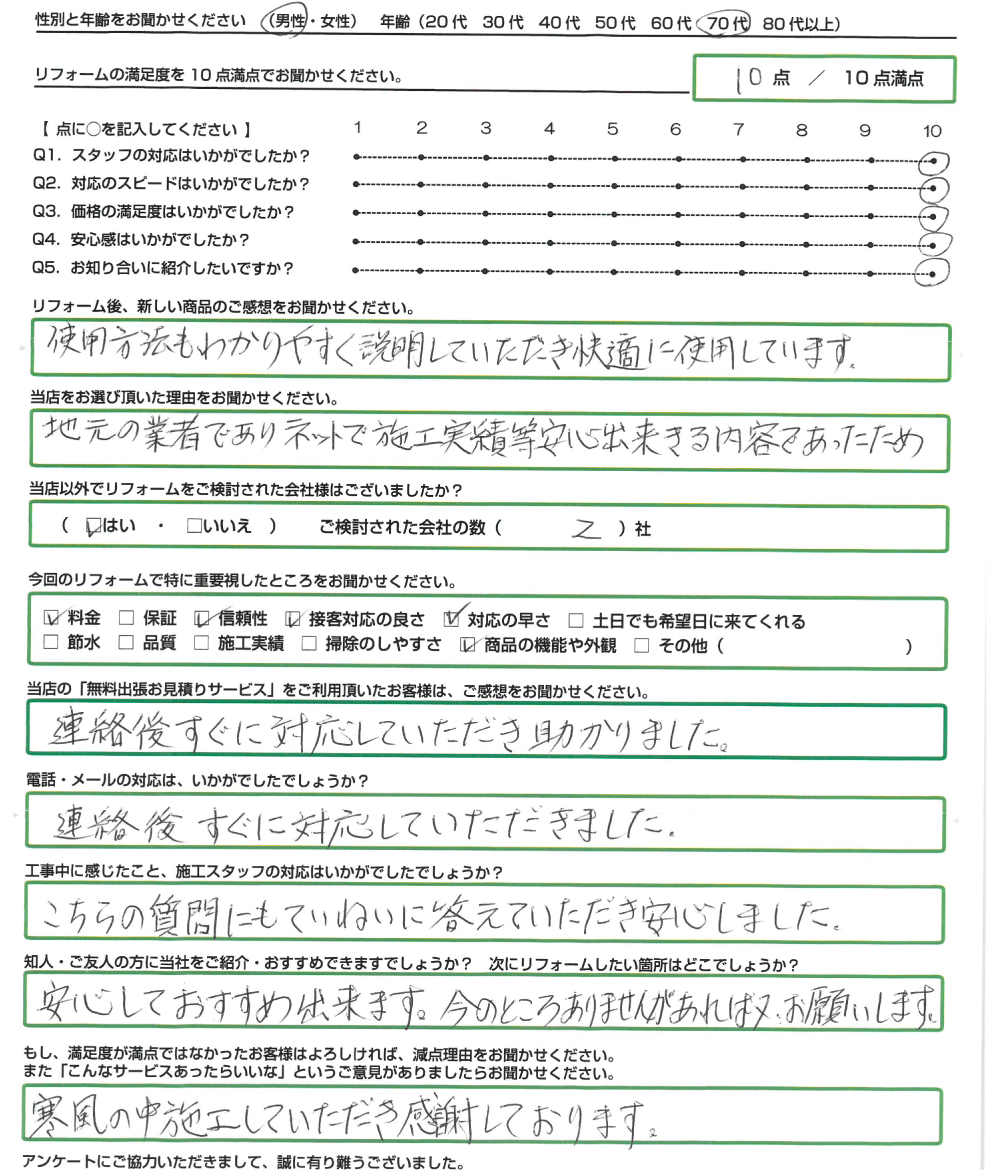 性別と年齢をお聞かせください （男性・女性） 年齢（20代 30代 40代 50代 60代 70代 80代以上）
リフォームの満足度を10点満点でお聞かせください。 10点 ／ 10点満点
【 点に○を記入してください 】 1 2 3 4 5 6 7 8 9 10
Q1. スタッフの対応はいかがでしたか？
Q2. 対応のスピードはいかがでしたか？
Q3. 価格の満足度はいかがでしたか？
Q4. 安心感はいかがでしたか？
Q5. お知り合いに紹介したいですか？
リフォーム後、新しい商品のご感想をお聞かせください。
使用方法もわかりやすく説明していただき快適に使用しています。
当店をお選び頂いた理由をお聞かせください。
地元の業者でありネットで施工実績等安心出来きる内容であったため
当店以外でリフォームをご検討された会社様はございましたか？
（ ☑はい ・ □いいえ ） ご検討された会社の数（ 2 ）社
今回のリフォームで特に重要視したところをお聞かせください。
☑ 料金 □ 保証 ☑ 信頼性 ☑ 接客対応の良さ ☑ 対応の早さ □ 土日でも希望日に来てくれる
□ 節水 □ 品質 □ 施工実績 □ 掃除のしやすさ ☑ 商品の機能や外観 □ その他（ ）
当店の「無料出張お見積りサービス」をご利用頂いたお客様は、ご感想をお聞かせください。
連絡後すぐに対応していただき助かりました。
電話・メールの対応は、いかがでしたでしょうか？
連絡後すぐに対応していただきました。
工事中に感じたこと、施工スタッフの対応はいかがでしたでしょうか？
こちらの質問にもていねいに答えていただき安心しました。
知人・ご友人の方に当社をご紹介・おすすめできますでしょうか？ 次にリフォームしたい箇所はどこでしょうか？
安心しておすすめ出来ます。今のところありませんがあれば又、お願いします。
もし、満足度が満点ではなかったお客様はよろしければ、減点理由をお聞かせください。
また「こんなサービスあったらいいな」というご意見がありましたらお聞かせください。
寒風の中施工していただき感謝しております。
アンケートにご協力いただきまして、誠に有り難うございました。